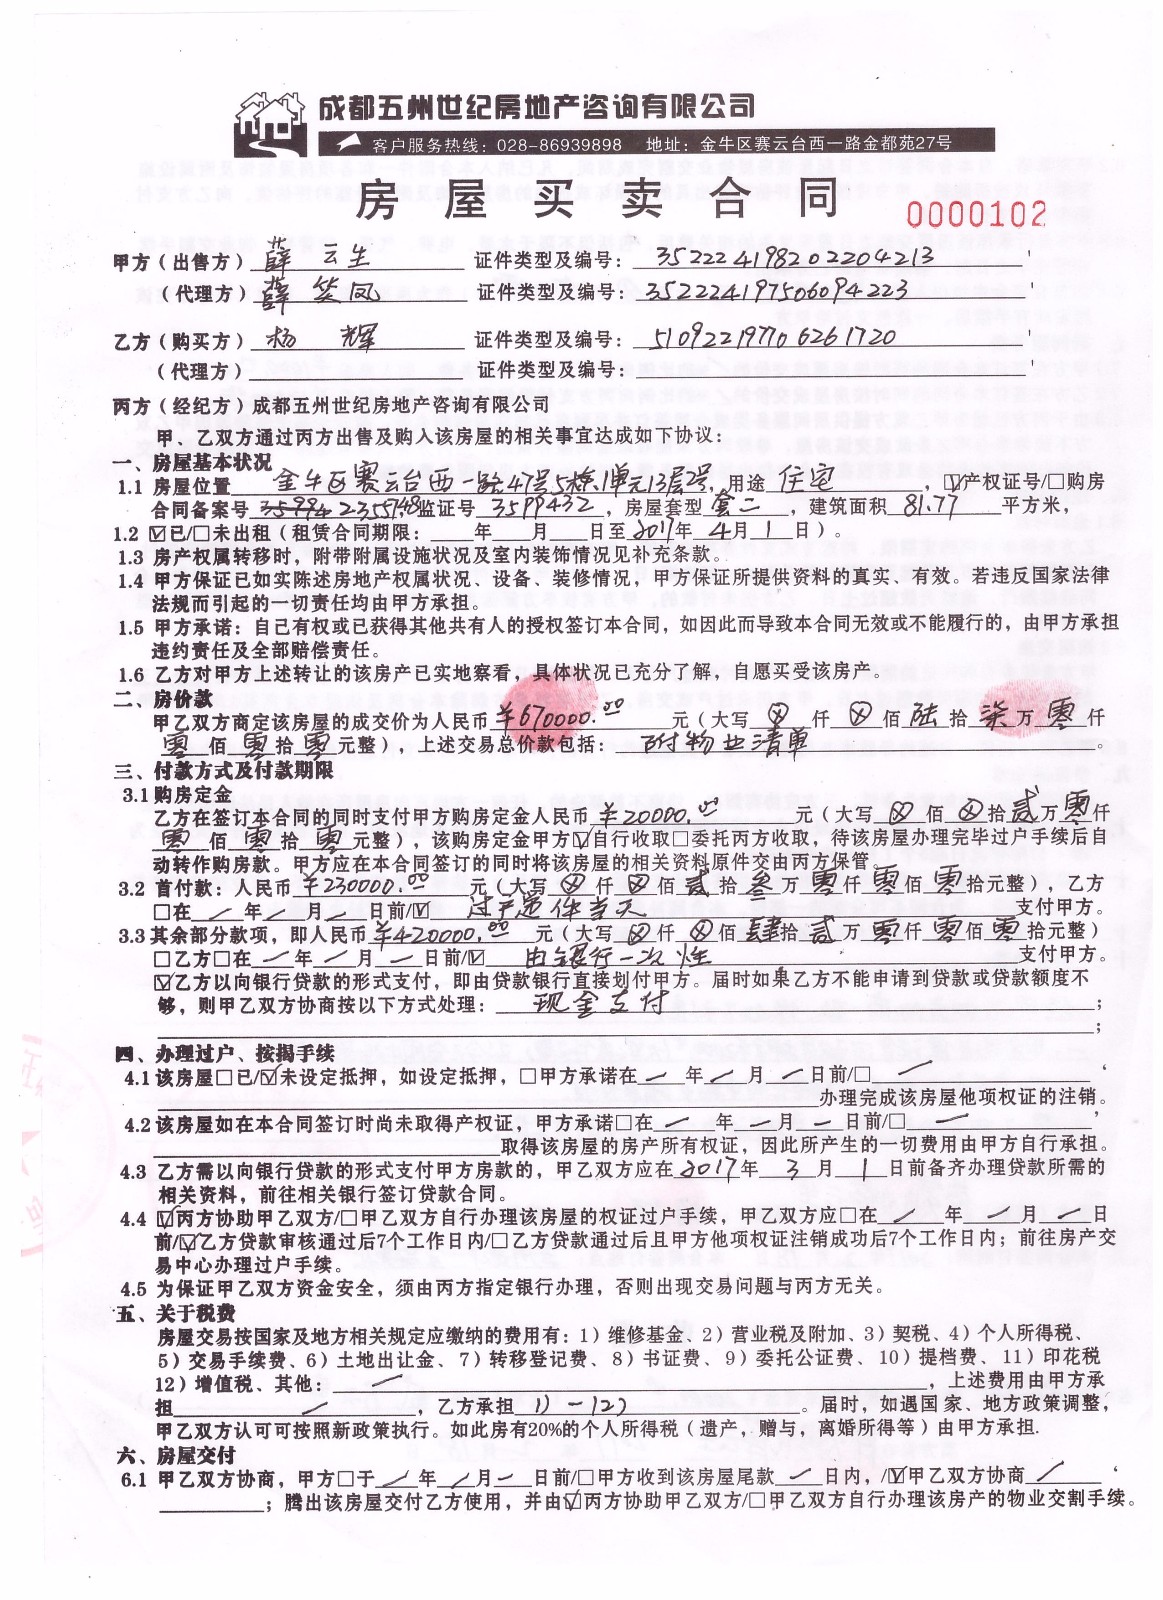 成都五州世纪房地产咨询有限公司
客户服务热线：028-86939898 地址：金牛区赛云台西一路金都苑27号
房屋买卖合同 0000102
甲方（出售方）薛云生 证件类型及编号：352224198202204213
（代理方）薛笑凤 证件类型及编号：352224197506094223
乙方（购买方）杨辉 证件类型及编号：510922197706261720
（代理方） 证件类型及编号：
丙方（经纪方）成都五州世纪房地产咨询有限公司
甲、乙双方通过丙方出售及购入该房屋的相关事宜达成如下协议：
一、房屋基本状况
1.1 房屋位置 金牛区赛云台西一路47号5栋1单元13层号，用途 住宅 ，☑产权证号/□购房
合同备案号 2355748监证号 3599432 ，房屋套型 套二 ，建筑面积 81.77 平方米，
1.2 ☑已/□未出租（租赁合同期限： 年 月 日至2017年4月1日）。
1.3 房产权属转移时，附带附属设施状况及室内装饰情况见补充条款。
1.4 甲方保证已如实陈述房地产权属状况、设备、装修情况，甲方保证所提供资料的真实、有效。若违反国家法律
法规而引起的一切责任均由甲方承担。
1.5 甲方承诺：自己有权或已获得其他共有人的授权签订本合同，如因此而导致本合同无效或不能履行的，由甲方承担
违约责任及全部赔偿责任。
1.6 乙方对甲方上述转让的该房产已实地察看，具体状况已充分了解，自愿买受该房产。
二、房价款
甲乙双方商定该房屋的成交价为人民币¥670000.00 元（大写 ⊗ 仟 ⊗ 佰 陆 拾 柒 万 零 仟
零 佰 零 拾 零 元整），上述交易总价款包括： 附物业清单 。
三、付款方式及付款期限
3.1购房定金
乙方在签订本合同的同时支付甲方购房定金人民币 ¥20000.00 元（大写 ⊗ 佰 ⊗ 拾 贰 万 零 仟
零 佰 零 拾 零 元整），该购房定金甲方☑自行收取□委托丙方收取，待该房屋办理完毕过户手续后自
动转作购房款。甲方应在本合同签订的同时将该房屋的相关资料原件交由丙方保管。
3.2 首付款：人民币 ¥230000.00 元（大写 ⊗ 仟 ⊗ 佰 贰 拾 叁 万 零 仟 零 佰 零 拾元整），乙方
□在 / 年 / 月 / 日前/☑ 过户递件当天 支付甲方。
3.3 其余部分款项，即人民币¥420000.00 元（大写 ⊗ 仟 ⊗ 佰 肆 拾 贰 万 零 仟 零 佰 零 拾元整）
□乙方□在 / 年 / 月 / 日前/☑ 由银行一次性 支付甲方。
☑乙方以向银行贷款的形式支付，即由贷款银行直接划付甲方。届时如果乙方不能申请到贷款或贷款额度不
够，则甲乙双方协商按以下方式处理： 现金支付 ；
；
四、办理过户、按揭手续
4.1 该房屋□已/☑未设定抵押，如设定抵押，□甲方承诺在 / 年 / 月 / 日前/□ / ，
办理完成该房屋他项权证的注销。
4.2 该房屋如在本合同签订时尚未取得产权证，甲方承诺□在 / 年 / 月 / 日前/□ / ，
取得该房屋的房产所有权证，因此所产生的一切费用由甲方自行承担。
4.3 乙方需以向银行贷款的形式支付甲方房款的，甲乙双方应在2017年 3 月 1 日前备齐办理贷款所需的
相关资料，前往相关银行签订贷款合同。
4.4 ☑丙方协助甲乙双方/□甲乙双方自行办理该房屋的权证过户手续，甲乙双方应□在 / 年 / 月 / 日
前/☑乙方贷款审核通过后7个工作日内/□乙方贷款通过后且甲方他项权证注销成功后7个工作日内；前往房产交
易中心办理过户手续。
4.5 为保证甲乙双方资金安全，须由丙方指定银行办理，否则出现交易问题与丙方无关。
五、关于税费
房屋交易按国家及地方相关规定应缴纳的费用有：1）维修基金、2）营业税及附加、3）契税、4）个人所得税、
5）交易手续费、6）土地出让金、7）转移登记费、8）书证费、9）委托公证费、10）提档费、11）印花税
12）增值税、其他： / ，上述费用由甲方承
担 / ，乙方承担 1）－12） 。届时，如遇国家、地方政策调整，
甲乙双方认可可按照新政策执行。如此房有20%的个人所得税（遗产，赠与，离婚所得等）由甲方承担.
六、房屋交付
6.1 甲乙双方协商，甲方□于 / 年 / 月 / 日前/□甲方收到该房屋尾款 / 日内，/☑甲乙双方协商 / ，
；腾出该房屋交付乙方使用，并由☑丙方协助甲乙双方/□甲乙双方自行办理该房产的物业交割手续。